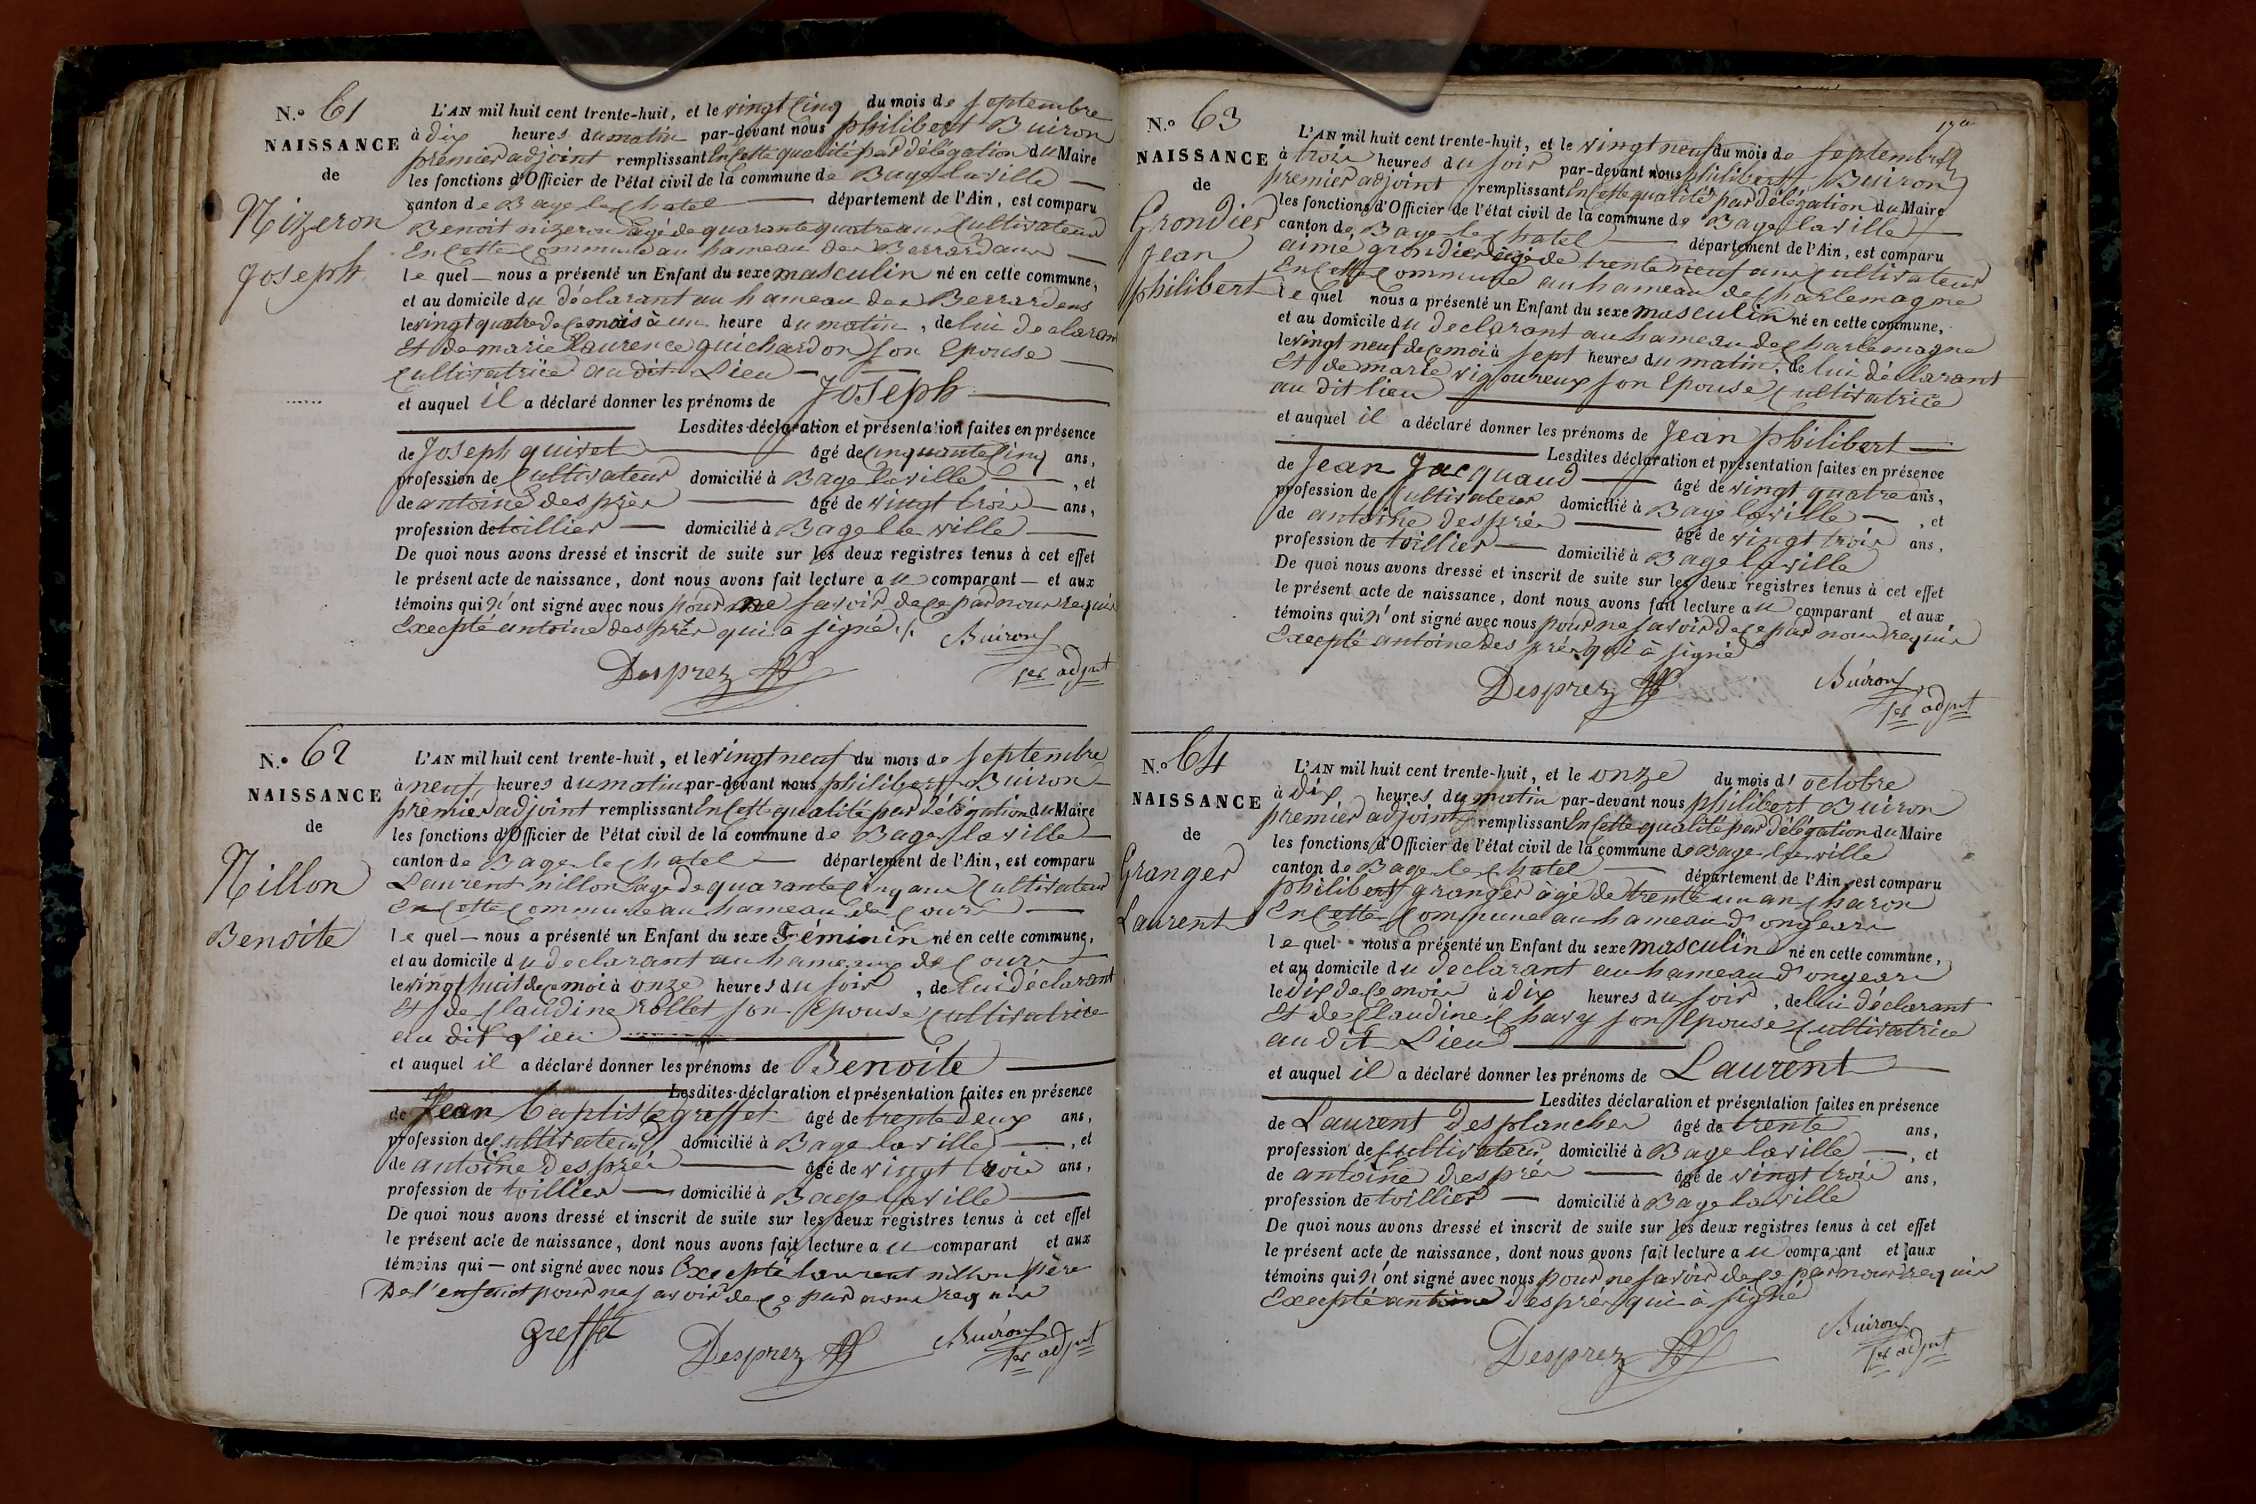 N.º 61
NAISSANCE
de
Nizeron
Joseph
L'AN mil huit cent trente-huit, et le vingt cinq du mois de septembre
à dix heures du matin par-devant nous philibert Buiron
premier adjoint remplissant En cette qualité par délégation du Maire
les fonctions d'Officier de l'état civil de la commune de Bage la ville
canton de Bage le chatel département de l'Ain, est comparu
Benoit nizeron agé de quarante quatre ans cultivateur
En cette commune au hameau des
le quel nous a présenté un Enfant du sexe masculin né en cette commune,
et au domicile du déclarant au hameau des
le vingt quatre de ce mois à un heure du matin, de lui declarant
Et de marie Laurence guichardon son Epouse
cultivatrice au dit Lieu
et auquel il a déclaré donner les prénoms de Joseph
Lesdites déclaration et présentation faites en présence
de Joseph quivet âgé de cinquante cinq ans,
profession de cultivateur domicilié à Bage la ville, et
de antoine després âgé de vingt trois ans,
profession de toillier domicilié à Bage la ville
De quoi nous avons dressé et inscrit de suite sur les deux registres tenus à cet effet
le présent acte de naissance, dont nous avons fait lecture au comparant et aux
témoins qui n'ont signé avec nous pour ne savoir de ce par nous requis
Excepté antoine després qui à signé
Buiron
Desprez 1er adjnt
N.º 62
NAISSANCE
de
Nillon
Benoite
L'AN mil huit cent trente-huit, et le vingt neuf du mois de septembre
à neuf heures du matin par-devant nous philibert Buiron
premier adjoint remplissant En cette qualité par délégation du Maire
les fonctions d'Officier de l'état civil de la commune de Bage la ville
canton de Bage le chatel département de l'Ain, est comparu
Laurent nillon agé de quarante cinq ans cultivateur
En cette commune au hameau de cours
le quel nous a présenté un Enfant du sexe Féminin né en cette commune,
et au domicile du declarant au hameau de cours
le vingt huit de ce moi à onze heures du soir, de lui déclarant
Et de claudine rollet son Epouse cultivatrice
au dit Lieu
et auquel il a déclaré donner les prénoms de Benoite
Lesdites déclaration et présentation faites en présence
de Jean Baptiste greffet âgé de trente deux ans,
profession de cultivateur domicilié à Bage la ville, et
de antoine després âgé de vingt trois ans,
profession de toillier domicilié à Bage la ville
De quoi nous avons dressé et inscrit de suite sur les deux registres tenus à cet effet
le présent acte de naissance, dont nous avons fait lecture au comparant et aux
témoins qui ont signé avec nous Excepté laurent nillon père
De l'enfant pour ne savoir de ce par nous requis
greffet Desprez Buiron
1er adjnt
N.º 63
NAISSANCE
de
Grondier
Jean
philibert
L'AN mil huit cent trente-huit, et le vingt neuf du mois de septembre
à trois heures du soir par-devant nous philibert Buiron
premier adjoint remplissant En cette qualité par délégation du Maire
les fonctions d'Officier de l'état civil de la commune de Bage la ville
canton de Bage le chatel département de l'Ain, est comparu
aimé grondier agé de trente neuf ans cultivateur
En cette commune au hameau de charlemagne
le quel nous a présenté un Enfant du sexe masculin né en cette commune,
et au domicile du declarant au hameau de charlemagne
le vingt neuf de ce moi à sept heures du matin, de lui déclarant
Et de marie vigoureux son Epouse cultivatrice
au dit lieu
et auquel il a déclaré donner les prénoms de Jean philibert
Lesdites déclaration et présentation faites en présence
de Jean Jacquand âgé de vingt quatre ans,
profession de cultivateur domicilié à Bage la ville, et
de antoine després âgé de vingt trois ans,
profession de toillier domicilié à Bage la ville
De quoi nous avons dressé et inscrit de suite sur les deux registres tenus à cet effet
le présent acte de naissance, dont nous avons fait lecture au comparant et aux
témoins qui n'ont signé avec nous pour ne savoir de ce par nous requis
Excepté antoine després qui à signé
Desprez Buiron
1er adjnt
N.º 64
NAISSANCE
de
Granger
Laurent
L'AN mil huit cent trente-huit, et le onze du mois d'octobre
à dix heures du matin par-devant nous philibert Buiron
premier adjoint remplissant En cette qualité par délégation du Maire
les fonctions d'Officier de l'état civil de la commune de Bage la ville
canton de Bage le chatel département de l'Ain, est comparu
philibert granger àgé de trente un an charon
En cette commune au hameau
le quel nous a présenté un Enfant du sexe masculin né en cette commune,
et au domicile du declarant au hameau
le dix de ce mois à dix heures du soir, de lui déclarant
Et de claudine chavy son Epouse cultivatrice
au dit Lieu
et auquel il a déclaré donner les prénoms de Laurent
Lesdites déclaration et présentation faites en présence
de Laurent Desplanches âgé de trente ans,
profession de cultivateur domicilié à Bage la ville, et
de antoine després âgé de vingt trois ans,
profession de toillier domicilié à Bage la ville
De quoi nous avons dressé et inscrit de suite sur les deux registres tenus à cet effet
le présent acte de naissance, dont nous avons fait lecture au comparant et aux
témoins qui n'ont signé avec nous pour ne savoir de ce par nous requis
Excepté antoine després qui à signé
Desprez Buiron
1er adjnt